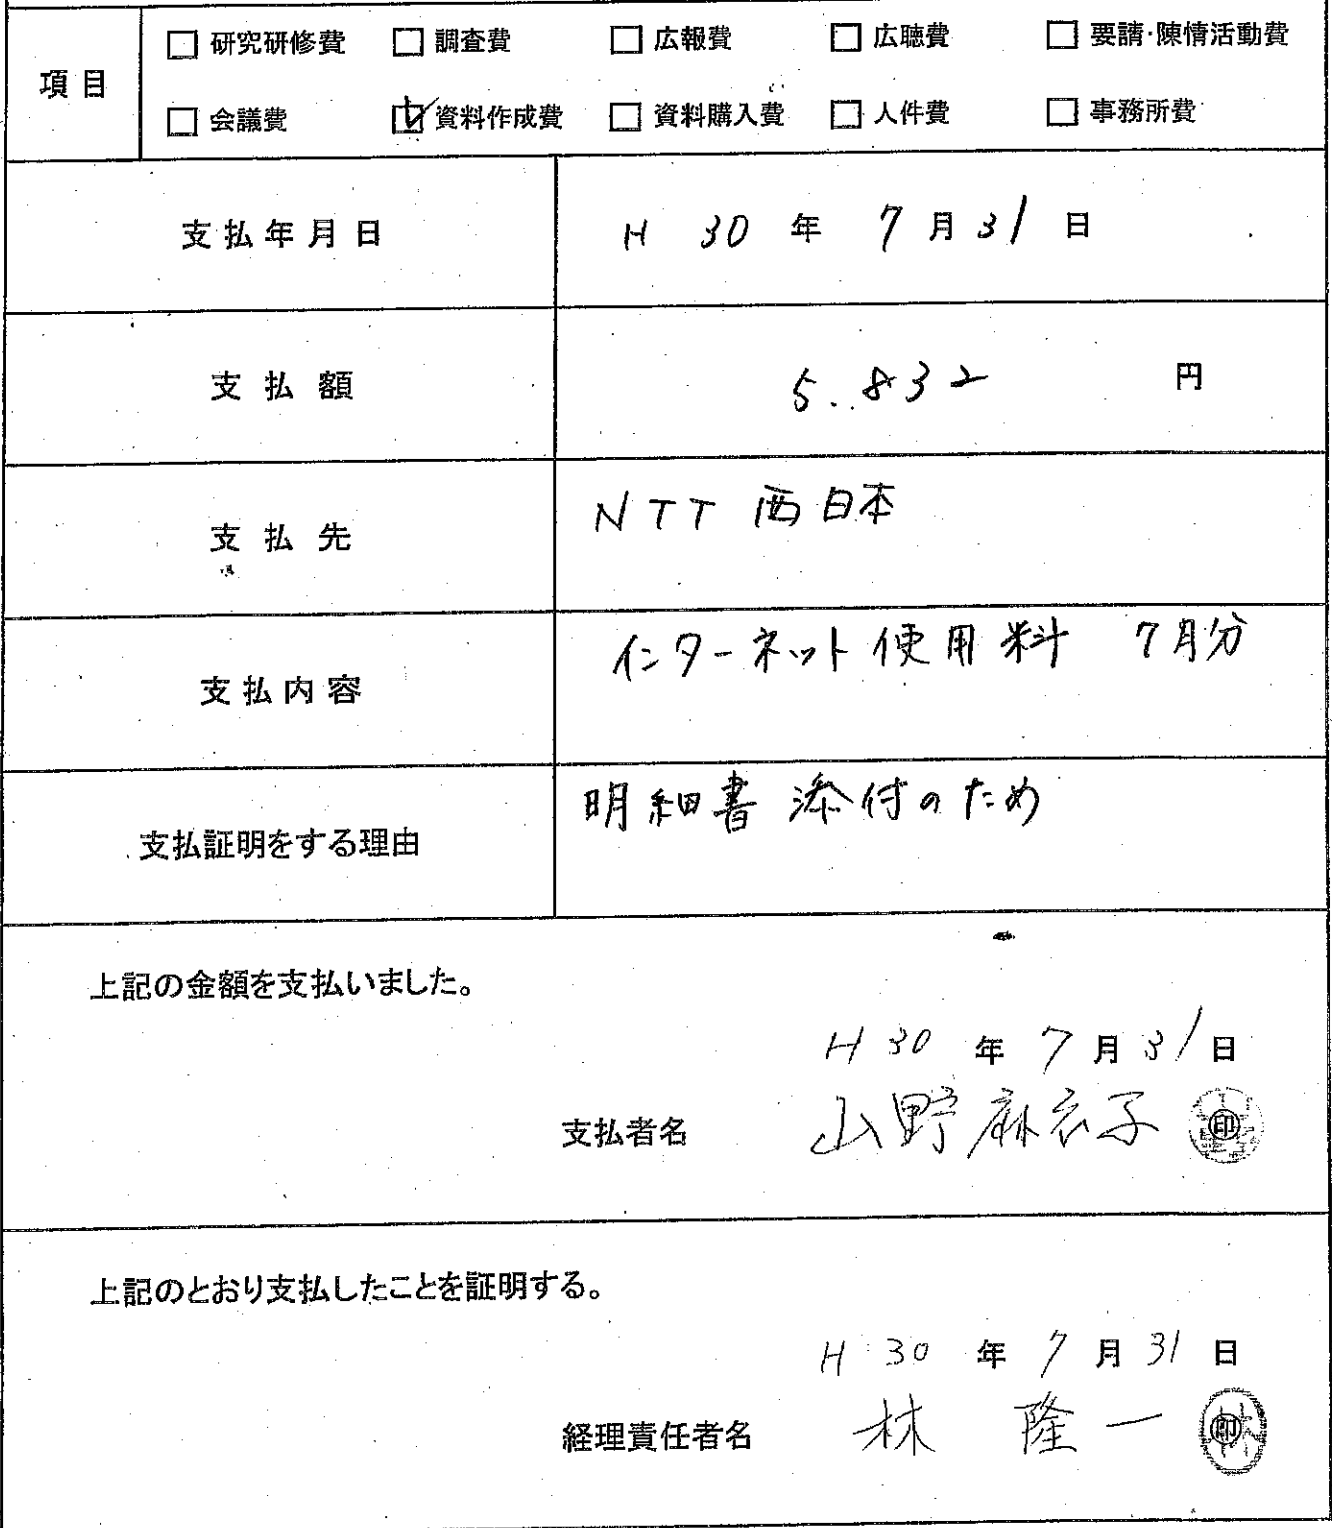 項目
□ 研究研修費 □ 調査費 □ 広報費 □ 広聴費 □ 要請・陳情活動費
□ 会議費 ☑ 資料作成費 □ 資料購入費 □ 人件費 □ 事務所費
支払年月日 H 30 年 7 月 31 日
支払額 5.832 円
支払先 NTT 西日本
支払内容 インターネット使用料 7月分
支払証明をする理由 明細書添付のため
上記の金額を支払いました。
H 30 年 7 月 31 日
支払者名 山野麻衣子 印
上記のとおり支払したことを証明する。
H 30 年 7 月 31 日
経理責任者名 林 隆一 印